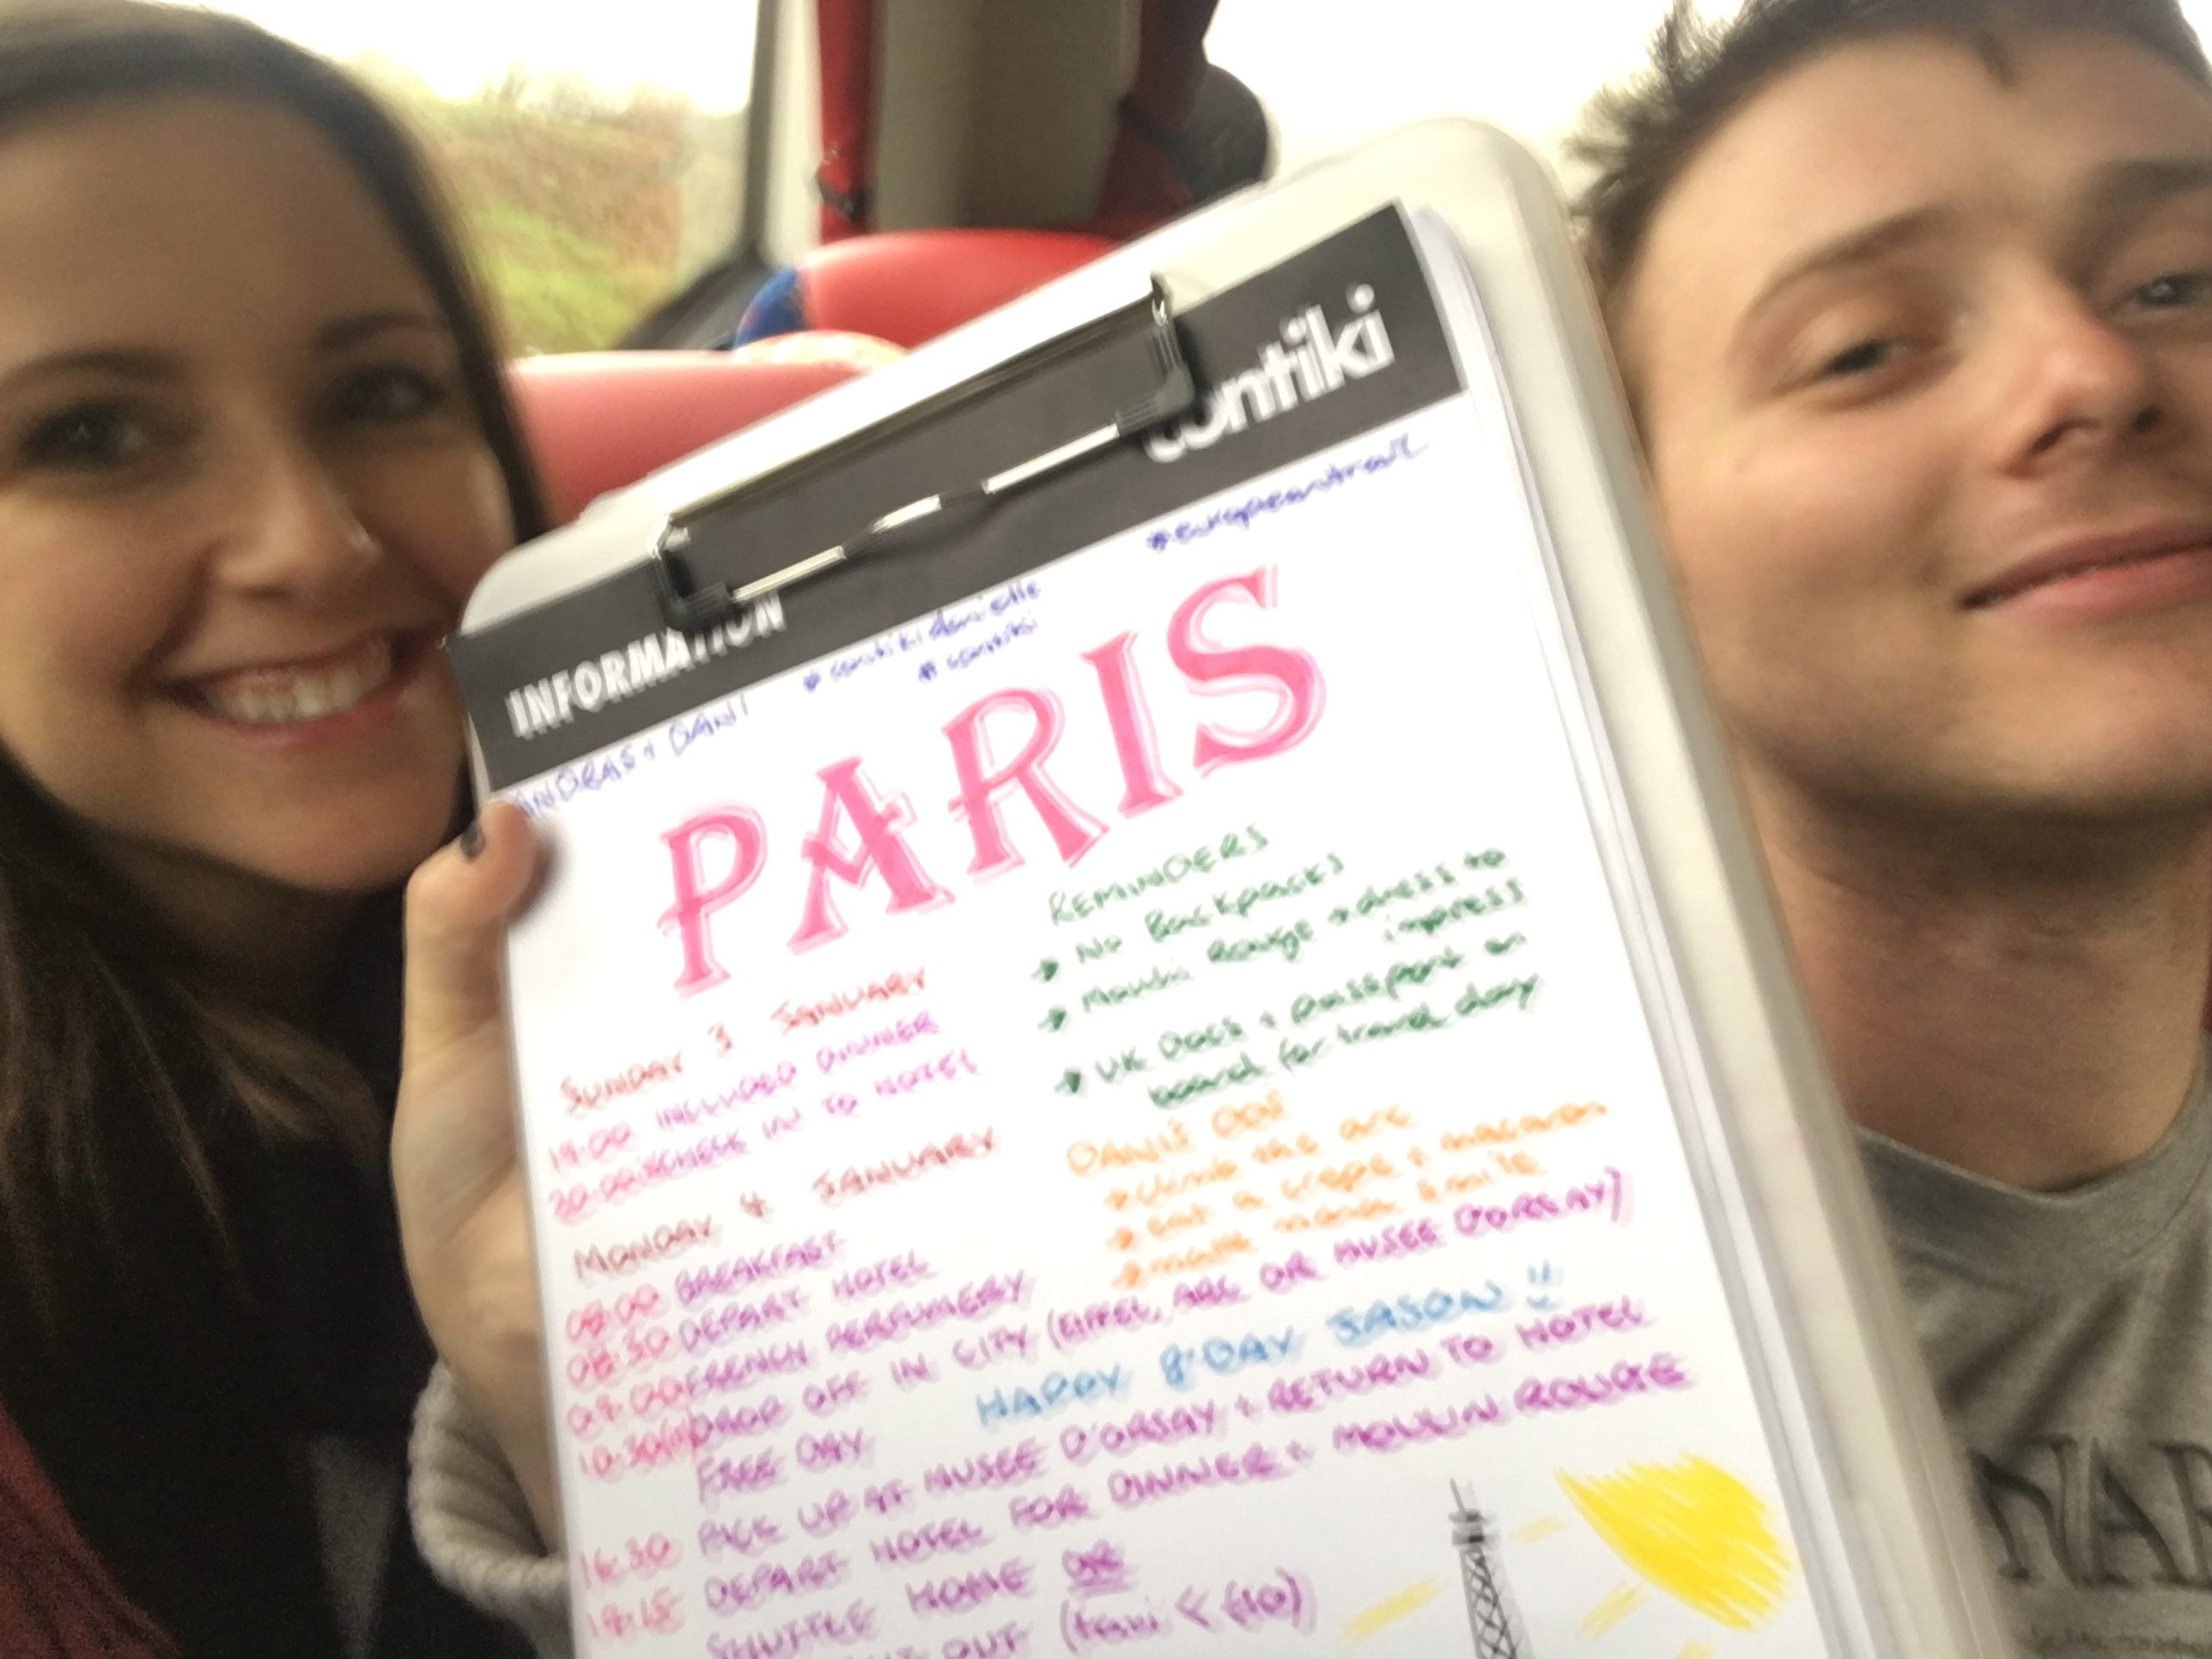 INFORMATION contiki
#europeantrail
ANDREAS + DANI #contikidanielle
#contiki
PARIS
REMINDERS
→ No Backpacks
→ Moulin Rouge → dress to
impress
→ UK Docs + passport on
board for travel day
SUNDAY 3 JANUARY
19:00 INCLUDED DINNER
20:00 CHECK IN TO HOTEL
DANI'S DOS
→ climb the arc
→ eat a crepe + macaron
→ make mona smile
MONDAY 4 JANUARY
08:00 BREAKFAST
08:30 DEPART HOTEL
09:00 FRENCH PERFUMERY
10:30(ish) DROP OFF IN CITY (EIFFEL, ARC OR MUSEE D'ORSAY)
FREE DAY HAPPY B'DAY JASON
16:30 PICK UP AT MUSEE D'ORSAY + RETURN TO HOTEL
DEPART HOTEL FOR DINNER + MOULIN ROUGE
SHUTTLE HOME OR
OUT (taxi < €10)
NAR